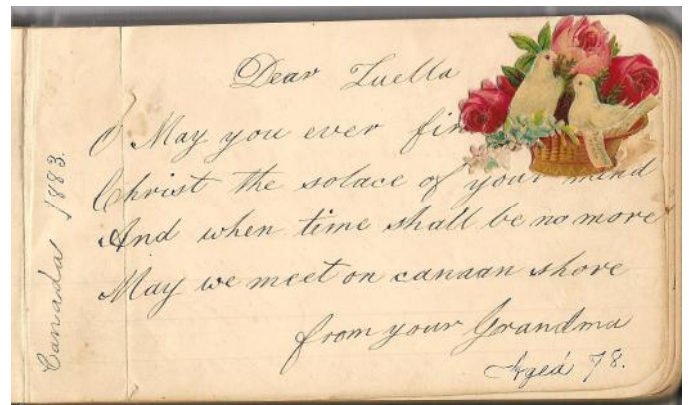 Dear Luella
O May you ever fin
Christ the solace of your mind
And when time shall be no more
May we meet on canaan shore
from your Grandma
Aged 78.
Canada 1883.